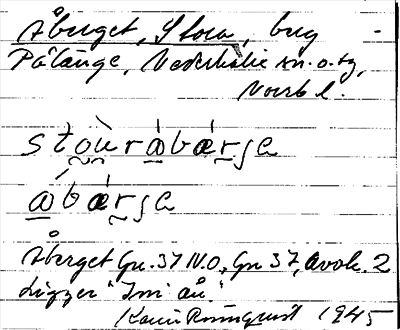 Åberget, Stora, berg -
Pålänge, Nederkalix sn. o. tg,
Norrb l.
stòu̯ràbárʃa
ábárʃa
Åberget Gn. 37 N.O., Gn 37, Avok. 2
Ligger "Imi ån."
Karin Runnquist 1945